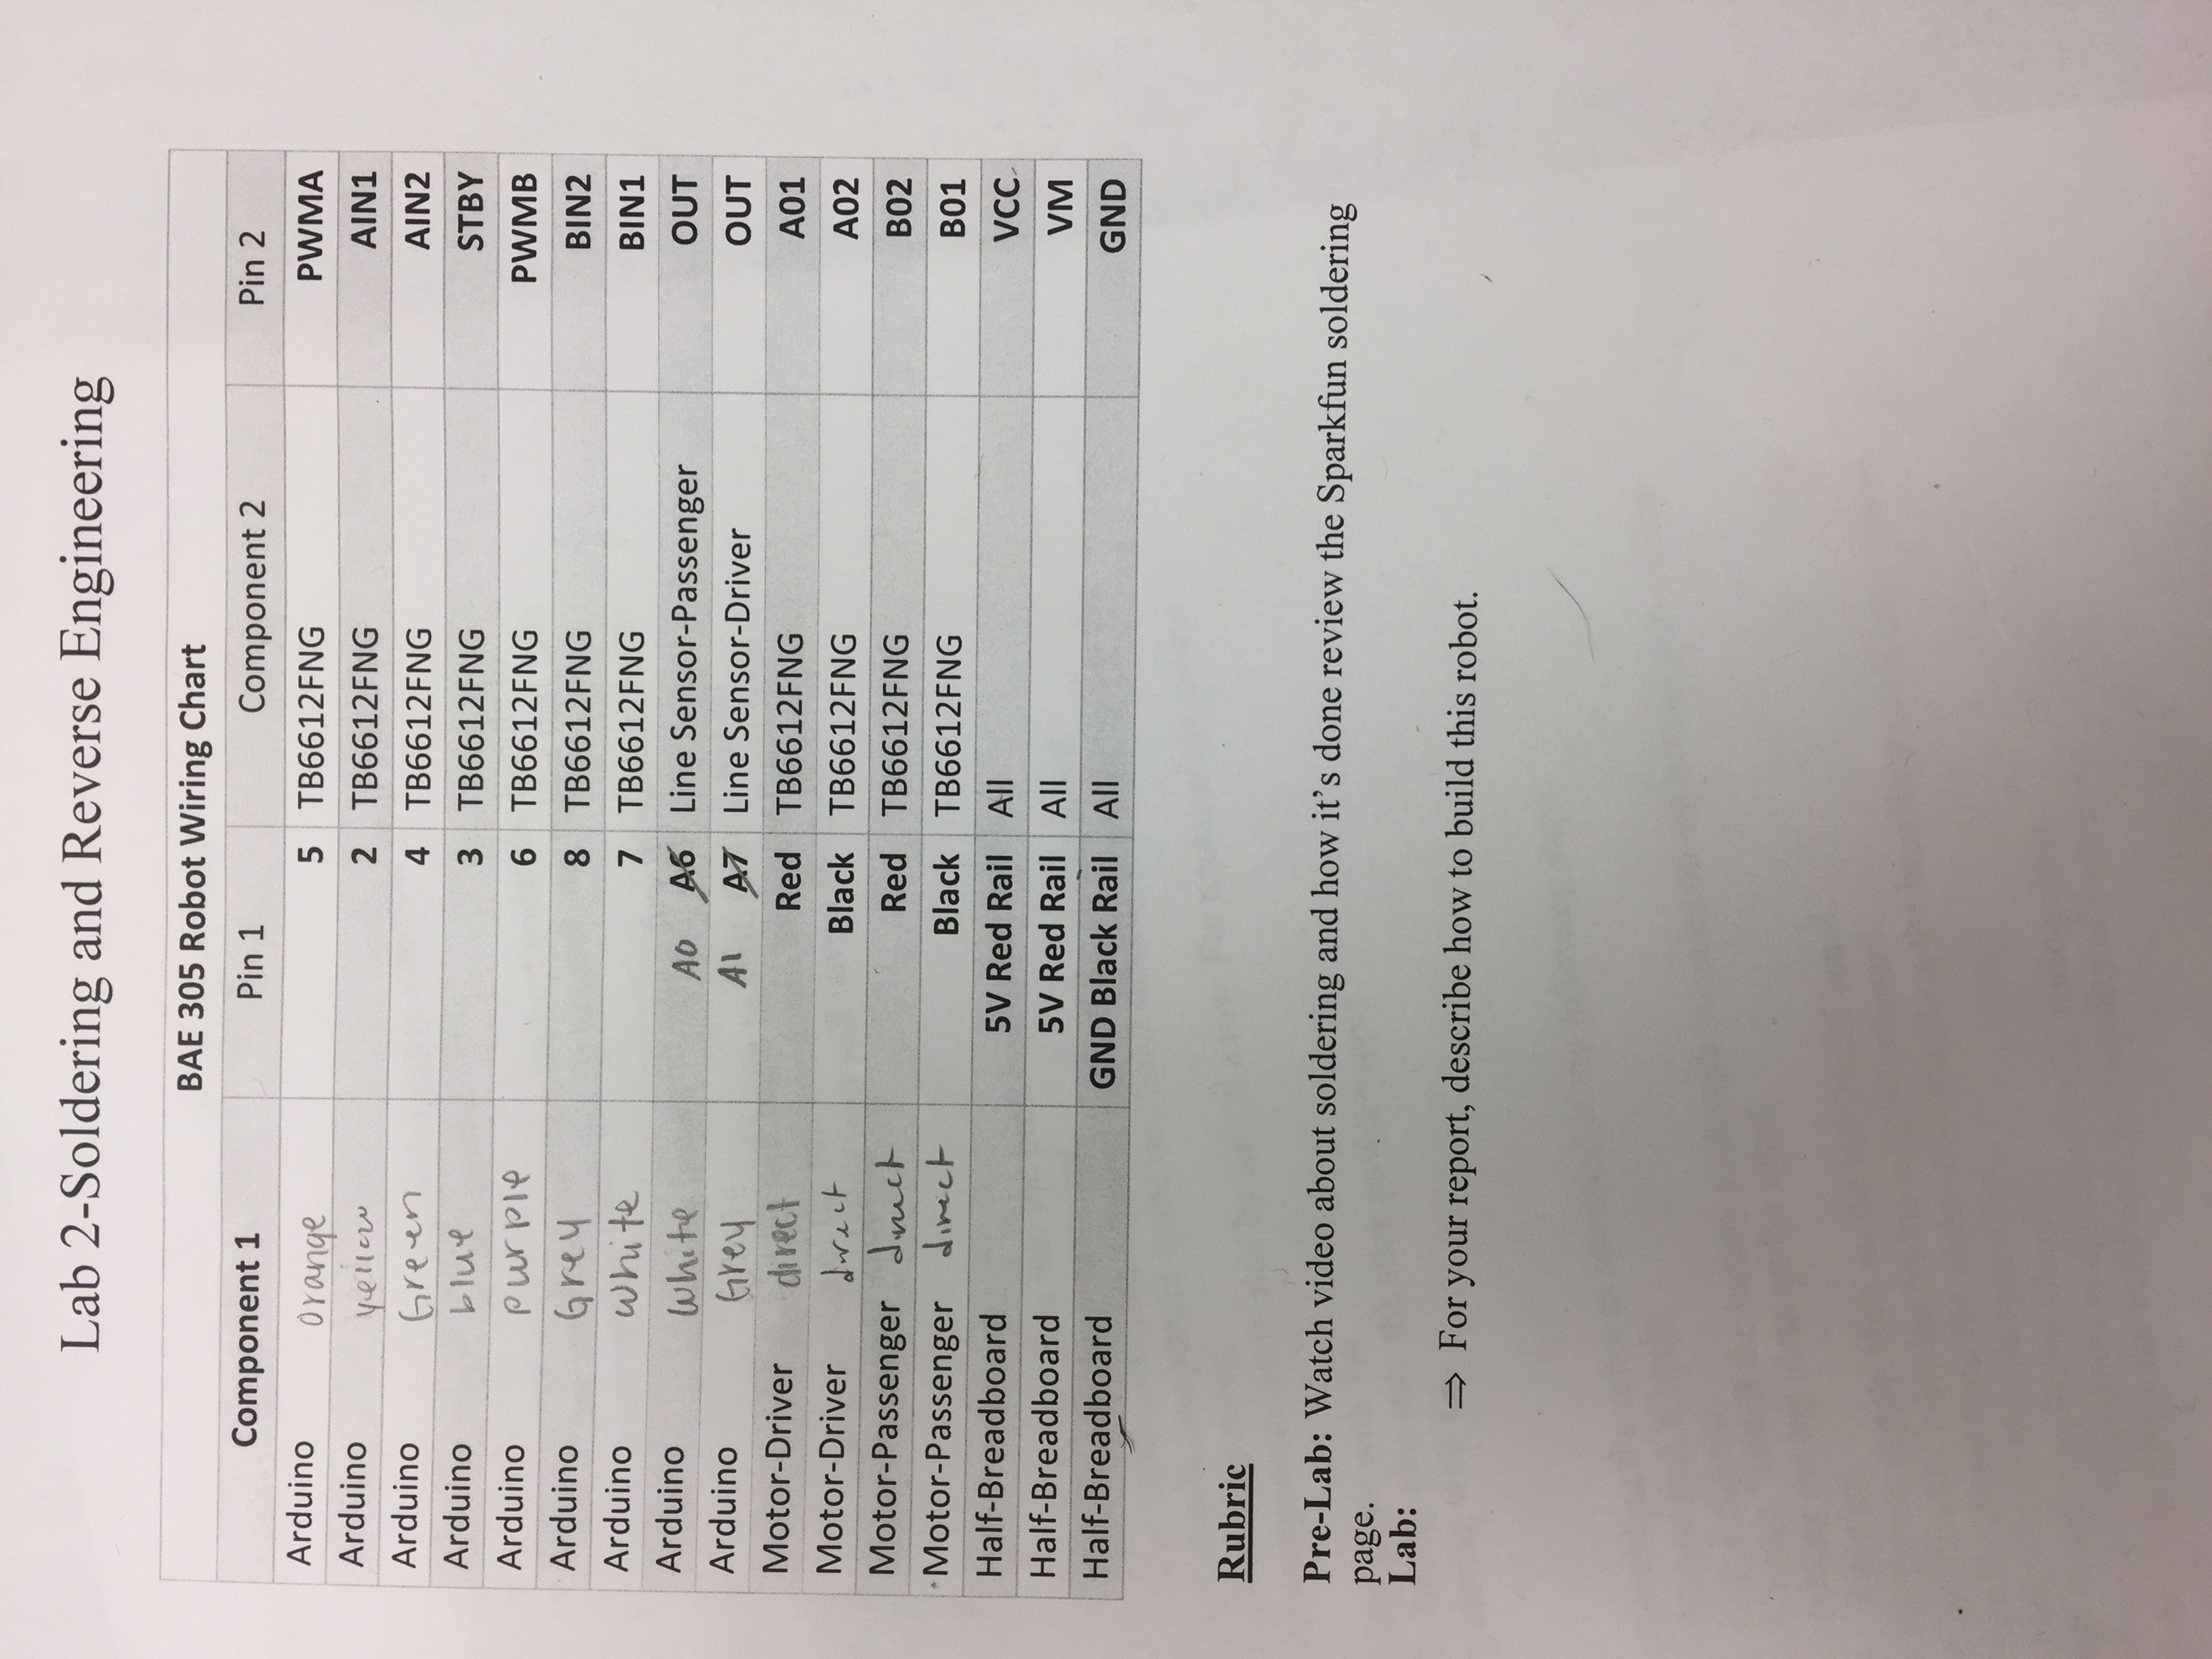 Lab 2-Soldering and Reverse Engineering
BAE 305 Robot Wiring Chart
Component 1 Pin 1 Component 2 Pin 2
Arduino Orange 5 TB6612FNG PWMA
Arduino yellow 2 TB6612FNG AIN1
Arduino Green 4 TB6612FNG AIN2
Arduino blue 3 TB6612FNG STBY
Arduino purple 6 TB6612FNG PWMB
Arduino Grey 8 TB6612FNG BIN2
Arduino White 7 TB6612FNG BIN1
Arduino White A0 A6 Line Sensor-Passenger OUT
Arduino Grey A1 A7 Line Sensor-Driver OUT
Motor-Driver direct Red TB6612FNG A01
Motor-Driver direct Black TB6612FNG A02
Motor-Passenger direct Red TB6612FNG B02
Motor-Passenger direct Black TB6612FNG B01
Half-Breadboard 5V Red Rail All VCC
Half-Breadboard 5V Red Rail All VM
Half-Breadboard GND Black Rail All GND
Rubric
Pre-Lab: Watch video about soldering and how it's done review the Sparkfun soldering
page.
Lab:
⇒ For your report, describe how to build this robot.